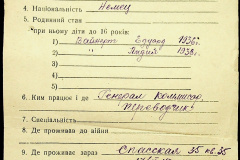 4. Національність Немец
5. Родинний стан
при ньому діти до 16 років:
1) Вайнерт Эдуард 1936г.
2) " Лидия 1938г.
3)
4)
5)
6)
6. Ким працює і де Генерал Комиссар.
переводчик
7. Спеціальність
8. Де проживав до війни
9. Де проживає зараз Спасская 35 кв. 35